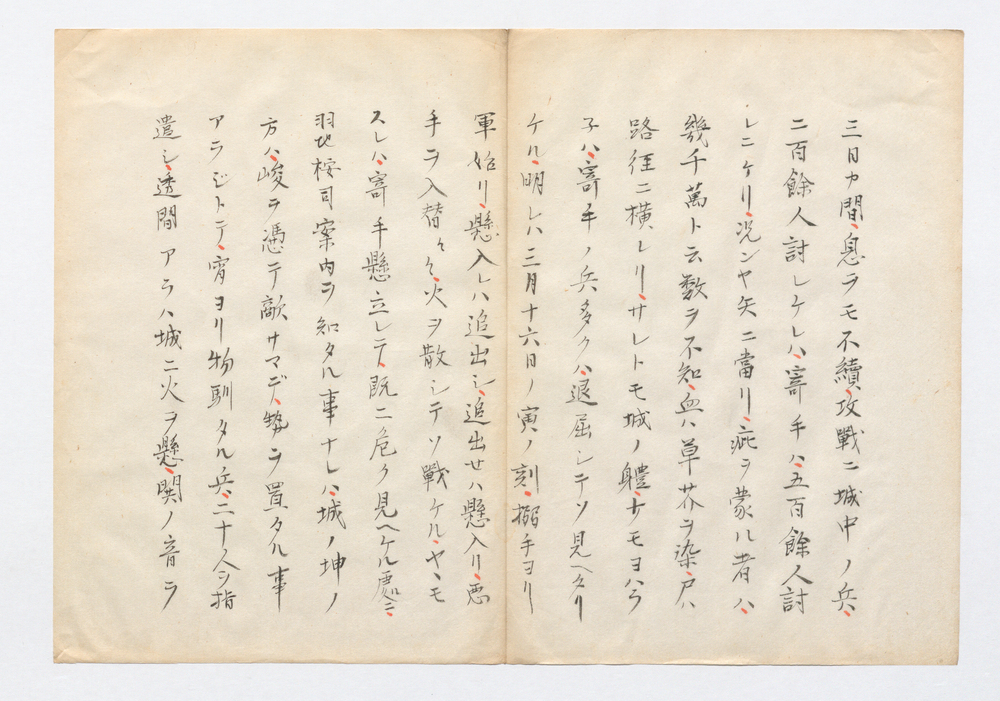 三日カ間、息ヲモ不續、攻戰ニ城中ノ兵、
二百餘人討レケレハ、寄手ハ、五百餘人討
レニケリ、况ンヤ矢ニ當リ、疵ヲ蒙ル者ハ、
幾千萬ト云数ヲ不知、血ハ草芥ヲ染、尸ハ
路徑ニ横レリ、サレトモ城ノ軆、少モヨハラ
子ハ、寄手ノ兵多クハ、退屈シテソ見ヘタリ
ケル、明レハ三月十六日ノ寅ノ刻、搦手ヨリ
軍始リ、懸入レハ追出シ、追出せハ懸入リ、悪
手ヲ入替々々、火ヲ散シテソ戰ケル、ヤヽモ
スレハ、寄手懸立レテ、既ニ危ク見ヘケル處ニ、
羽地桉司案内ヲ知タル事ナレハ、城ノ坤ノ
方ハ、峻ヲ憑テ敵サマデ、勢ヲ置タル事
アラジトテ、宵ヨリ物馴タル兵、二十人ヲ指
遣シ、透間アラハ城ニ火ヲ懸、関ノ音ヲ